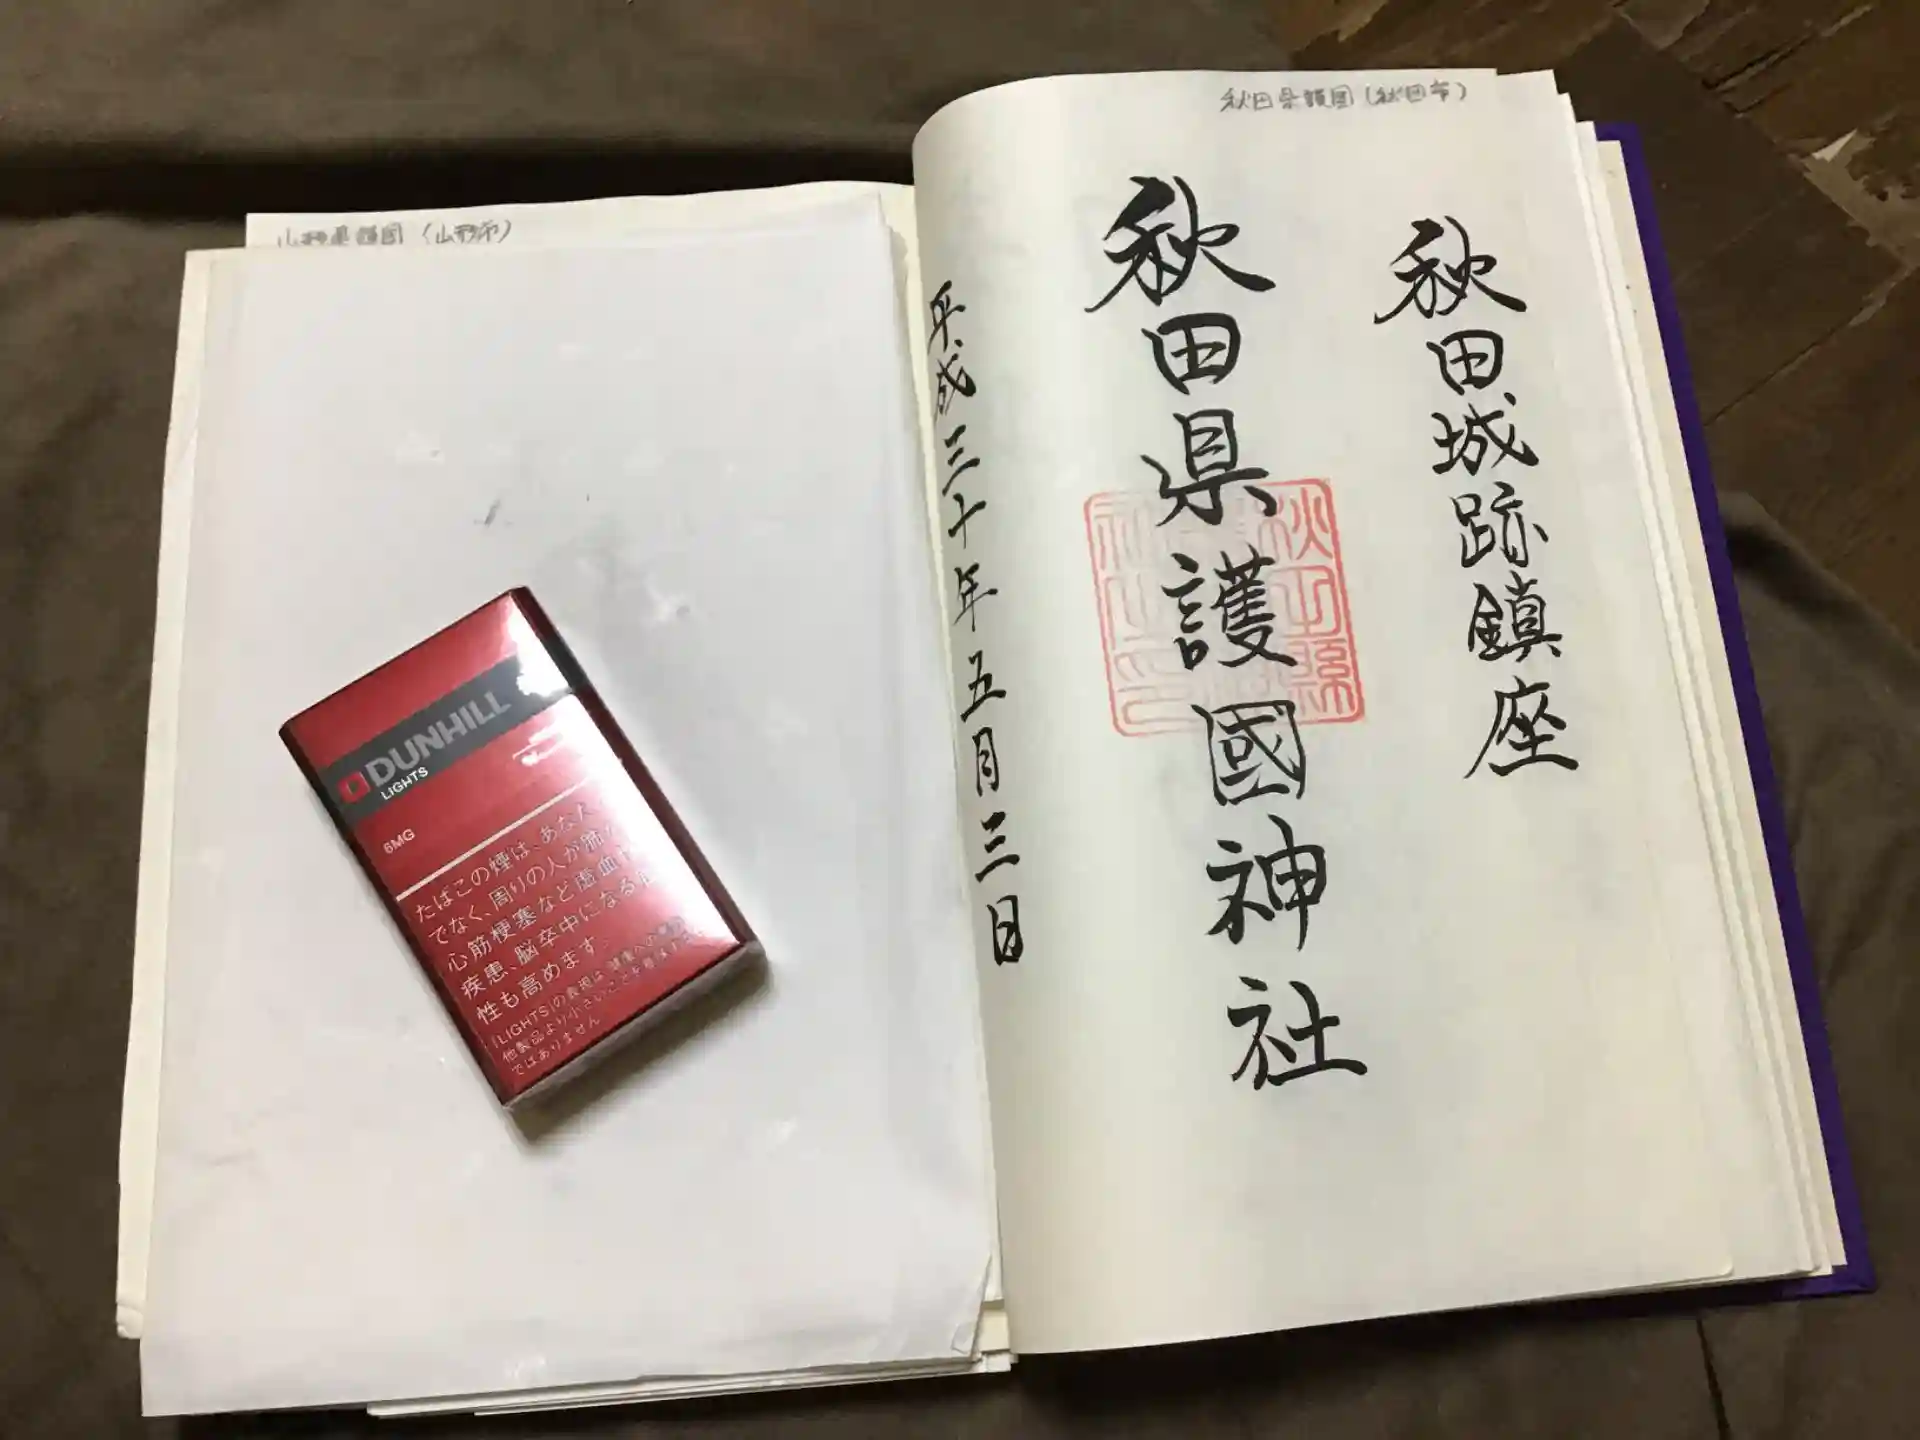 秋田県護国(秋田市)
秋田城跡鎮座
秋田県護國神社
平成三十年五月三日
山形県護国(山形市)
DUNHILL
LIGHTS
6MG
たばこの煙は、あなた
でなく、周りの人が肺
心筋梗塞など虚血
疾患、脳卒中になる
性も高めます。
「LIGHTS」の表現は、健康への
他製品より小さいことを意味するもの
ではありません